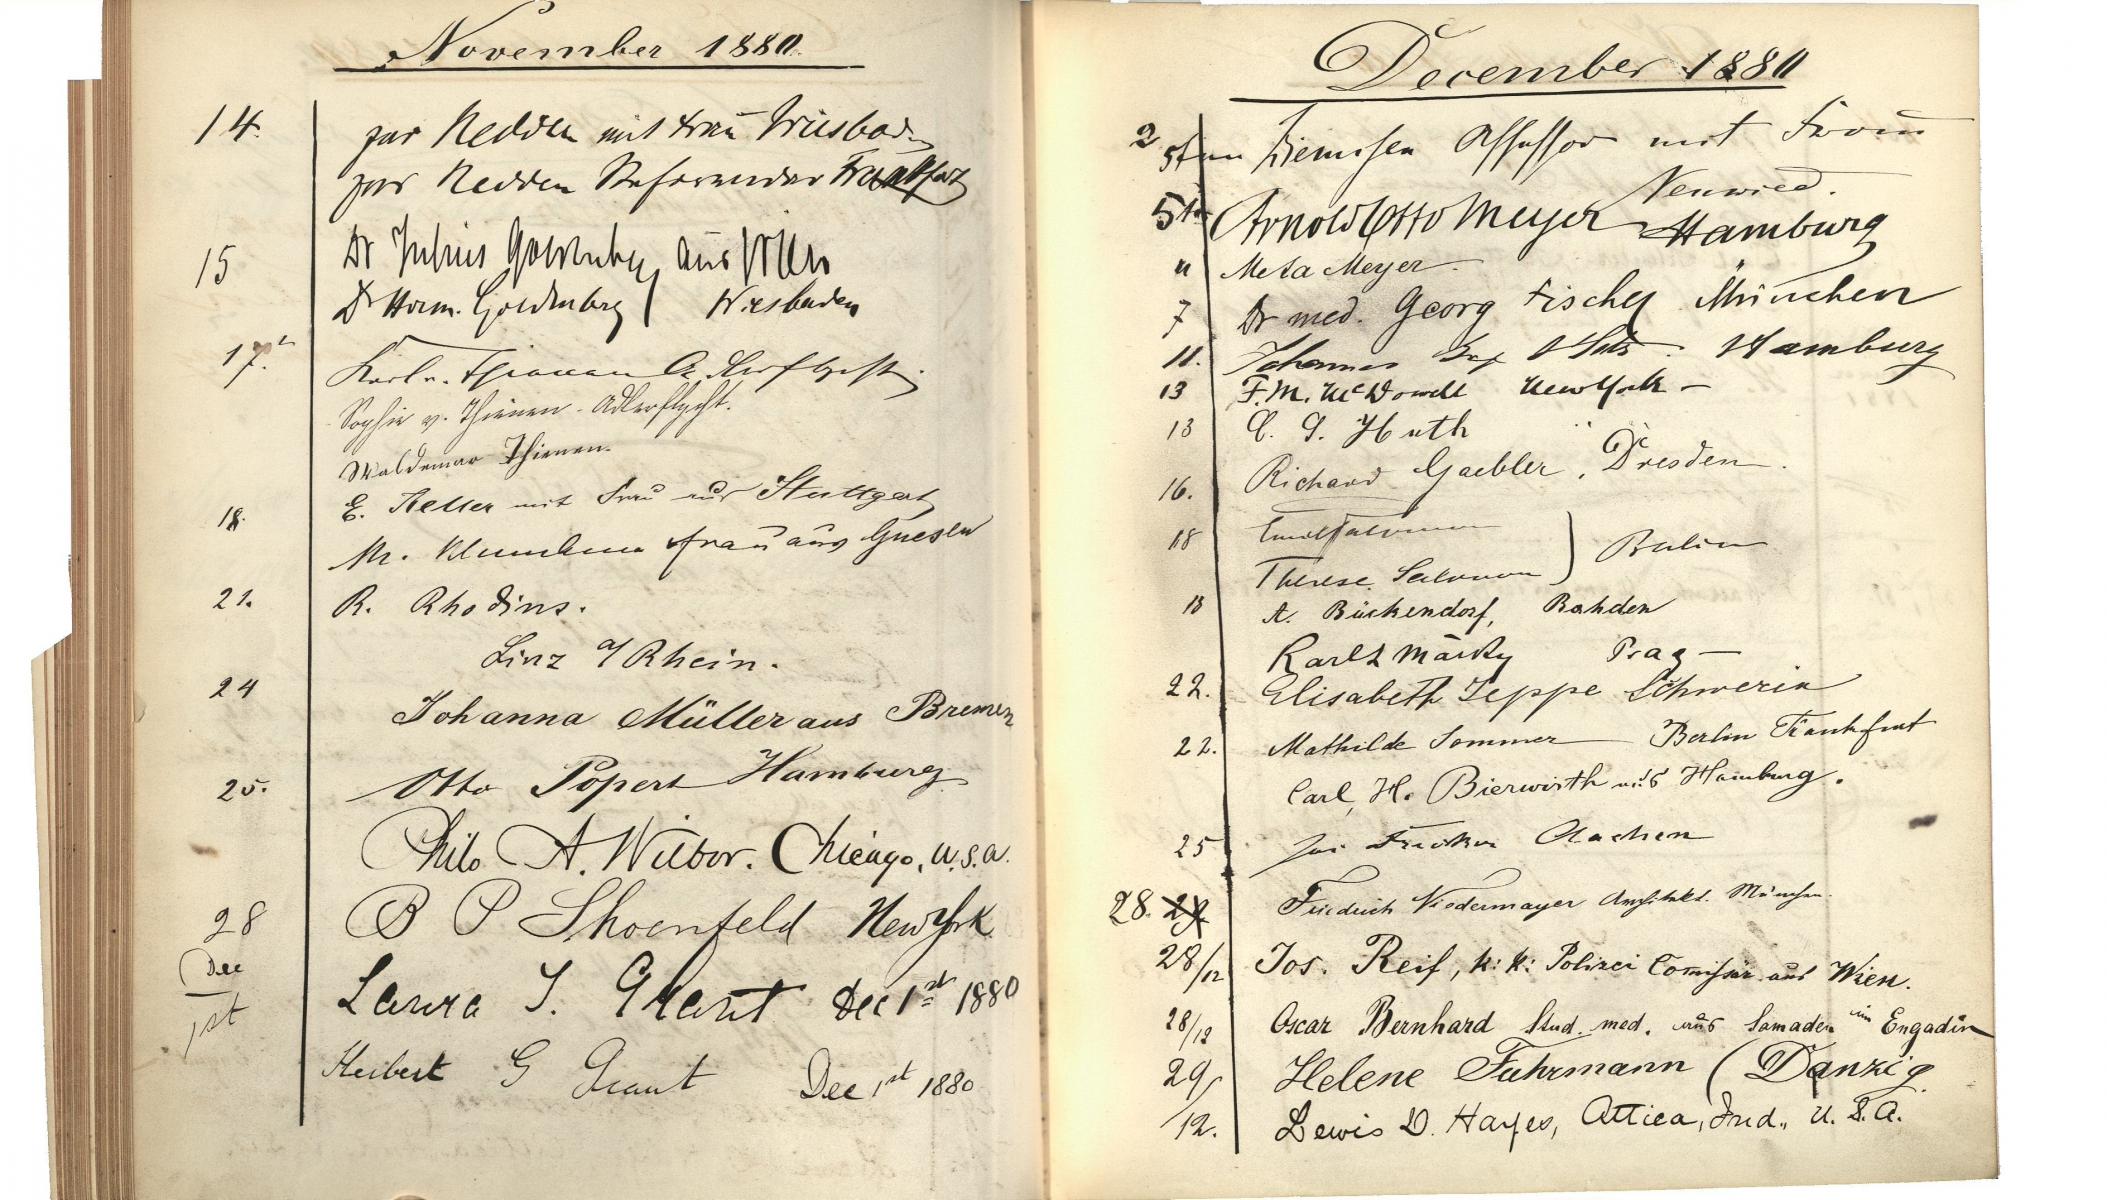 November 1880.
14. zur Nedden mit Frau Wiesbaden
zur Nedden Referendar Frankfurt
15 Dr Julius Goldenberg aus Wien
Dr Herm. Goldenberg Wiesbaden
17.
Sophie v. Thienen-Adlerflycht.
Waldemar Thienen.
18. E. Keller mit Frau aus Stuttgart
Frau aus Gnesen
21. R. Rhodius.
Linz a/Rhein.
24 Johanna Müller aus Bremen
25. Otto Popert Hamburg
Philo A. Wilbor. Chicago, U.S.A.
28 B P Shoenfeld New York
Dec 1st Laura I. Grant Dec 1st 1880
Herbert G Grant Dec 1st 1880
December 1880
2 Assessor mit Frau
Neuwied.
5 Arnold Otto Meyer Hamburg
" Meta Meyer.
7 Dr med. Georg Fischer München
11. Johannes Hamburg
13 F. M. McDowell New York –
13 C. G. Huth "
16. Richard Gaebler, Dresden.
18 Emil Salomon
Therese Salomon ) Berlin
18 A. Bückendorf, Rahden
Karel Prag –
22. Elisabeth Jeppe Schwerin
22. Mathilde Sommer Berlin Frankfurt
Carl H. Bierwirth aus Hamburg.
25 Aachen
28. 29. Friedrich Niedermayer Architekt. München.
28/12 Jos. Reif, k: k: Polizei Comissär aus Wien.
28/12 Oscar Bernhard Stud. med. aus Samaden im Engadin
29/ Helene Fuhrmann (Danzig.
12. Lewis D. Hayes, Attica, Ind., U.S.A.